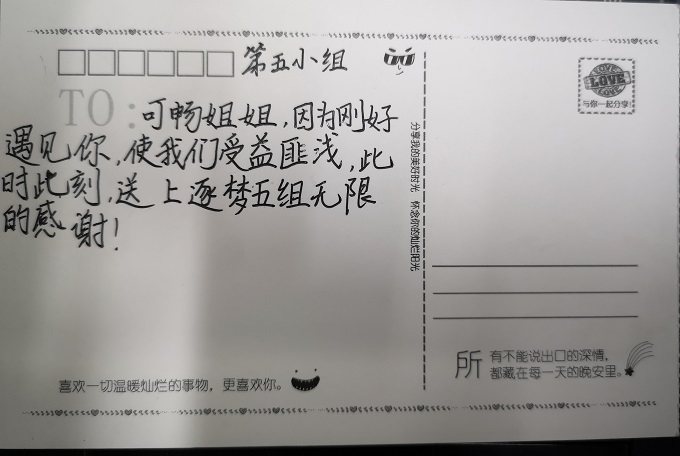 第五小组
TO:可畅姐姐,因为刚好
遇见你,使我们受益匪浅,此
时此刻,送上逐梦五组无限
的感谢!
喜欢一切温暖灿烂的事物,更喜欢你。
分享我的美好时光 怀念你的灿烂阳光
LOVE
LOVE
LOVE
与你一起分享!
所有不能说出口的深情,
都藏在每一天的晚安里。